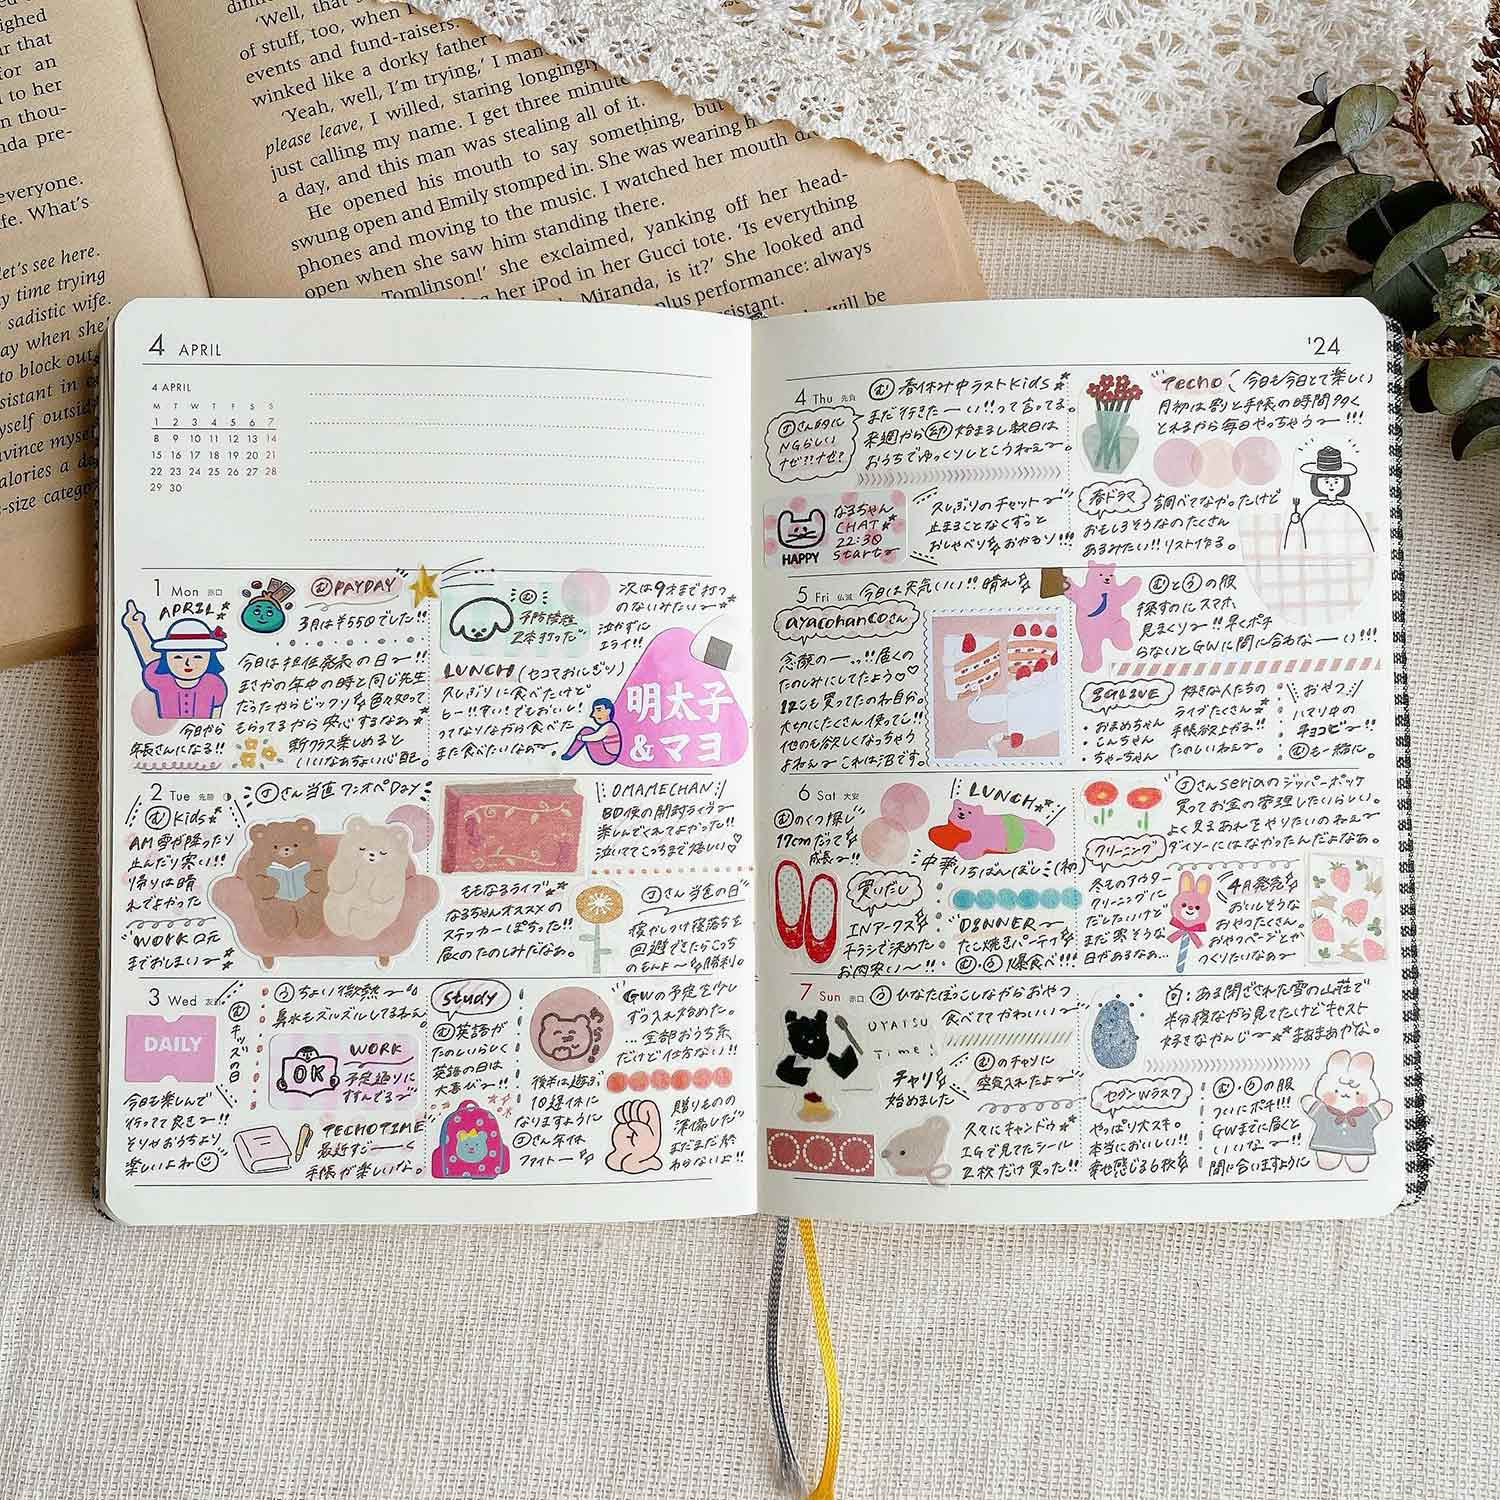 dinner
'Well, that
of stuff, too, when I
events and fund-raisers.
winked like a dorky father
'Yeah, well, I'm trying,' I
please leave, I willed, staring longingly
just calling my name. I get three minutes
a day, and this man was stealing all of it.
He opened his mouth to say something, but
swung open and Emily stomped in. She was wearing
phones and moving to the music. I watched her mouth
open when she saw him standing there.
Tomlinson!' she exclaimed, yanking off her head-
her iPod in her Gucci tote. 'Is everything
Miranda, is it?' She looked and
plus performance: always
sistant.
will be
ighed
r that
for an
to her
n thou-
nda pre-
everyone.
fe. What's
let's see here.
y time trying
sadistic wife.
ay when she
to block out
istant in
yself outside
nvince myself
alories a
-size
4 APRIL
4 APRIL
M T W T F S S
1 2 3 4 5 6 7
8 9 10 11 12 13 14
15 16 17 18 19 20 21
22 23 24 25 26 27 28
29 30
1 Mon 赤口
APRIL
今日から
年長さんになる!!
PAYDAY
3月は¥550でした!!
今日は担任発表の日〜!!
まさかの年中の時と同じ先生
だったからビックリ 色々知って
もらってるから安心するなぁ
新クラス楽しめると
いいなぁちょい心配。
予防接種
2本打った
次は9才まで打つ
のないみたい〜
泣かずに
エライ!!
LUNCH (セコマおにぎり)
久しぶりに食べたけど
ヒー!!辛い!でもおいし!
ってなりながら食べた
また食べたいなぁ〜
明太子
&マヨ
2 Tue 先勝
Jさん当直ワンオペDay
Kids
AM雪が降ったり
止んだり寒い!!
帰りは晴
れてよかった
WORK
までおしまい〜
OMAMECHAN
BD便の開封ライブ
楽しんでくれてよかった!!
泣いててこっちまで嬉しい♡
ももなるライブ
なるちゃんオススメの
ステッカーぽちった!!
届くのたのしみだなぁ。
Jさん当直の日
寝かしつけ寝落ちを
回避できたらこっち
のもんよ〜勝利。
3 Wed 友引
DAILY
キッズの日
今日も楽しんで
行ってて良き〜!!
そりゃおうちより
楽しいよね
ちょい微熱〜
鼻水もズルズルしてるねぇ。
OK
WORK
予定通りに
すすんでる〜
TECHO TIME
最近ずーーく
手帳が楽しいな。
study
英語が
たのしいらしく
英語の日は
大喜び〜!!
後半は遊ぶ
10連休に
なりますように
Jさん年休
ファイトー
GWの予定を少し
ずつ入れ始めた。
…全部おうち系
だけど仕方ない!!
贈りものの
準備しだ
まだまだ終
わらないよ!!
'24
4 Thu 先負
春休み中ラストKids
まだ行きたーい!!って言ってる。
来週から幼始まるし数日は
おうちでゆっくりしとこうねぇ〜
Jさん的に
NGらしい
ナゼ??ナゼ?
HAPPY
なるちゃん
CHAT
22:30
start〜
久しぶりのチャット〜
止まることなくずっと
おしゃべり おやかり!!!
Techo
今日も今日とて楽しい
月初は割と手帳の時間多く
とれるから毎日やっちゃう〜!!!
春ドラマ
調べてなかったけど
おもしろそうなのたくさん
あるみたい!!リスト作る。
5 Fri 仏滅
今日は天気いい!!晴れ
ayacohancoさん
念願のーっ!!届くの
たのしみにしてたよう♡
12こも買ってたのね自分。
大切にたくさん使ってこ!!
他のも欲しくなっちゃう
よねぇ〜これは沼です。
むとうの服
探すのにスマホ
見まくり〜!!早くポチ
らないとGWに間に合わなーい!!!
LIVE
おまめちゃん
こんちゃん
ちゃーちゃん
好きな人たちの
ライブたくさん
手帳欲上がる!!
たのしいねぇ〜
おやつ
ハマり中の
チョコビー!!
も一緒に。
6 Sat 大安
むのくつ探し
17cmだって
成長〜!!
買いだし
INアークス
チラシで決めた
お肉安い〜!!
LUNCH
中華いちばんぼし
DINNER〜
たこ焼きパーティ
む・う爆食べ!!!
Jさんseriaのジッパーポッケ
買ってお金の管理したいらしい。
よく見るあれをやりたいのねぇ〜
ダイソーにはなかったんだよなぁ。
クリーニング
冬モノアウター
クリーニングに
だしたいけど
まだ寒そうな
日があるなぁ…
4月発売
おいしそうな
おやつたくさん。
おやつページとか
つくりたいなぁ〜
7 Sun 赤口
うひなたぼっこしながらおやつ
食べててかわいい♡
OYATSU
Time!
チャリ
始めました
むのチャリに
空気入れたよ〜
久々にキャンドゥ
IGで見てたシール
2枚だけ買った!!
ある閉ざされた雪の山荘で
半分寝ながら見てたけどキャスト
好きなかんじ〜まぁまぁかな。
セブンWラスク
やっぱり大スキ。
本当においしい!!
幸せ感じる6枚
む・うの服
ついにポチ!!!
GWまでに届くと
いいな〜!!
間に合いますように